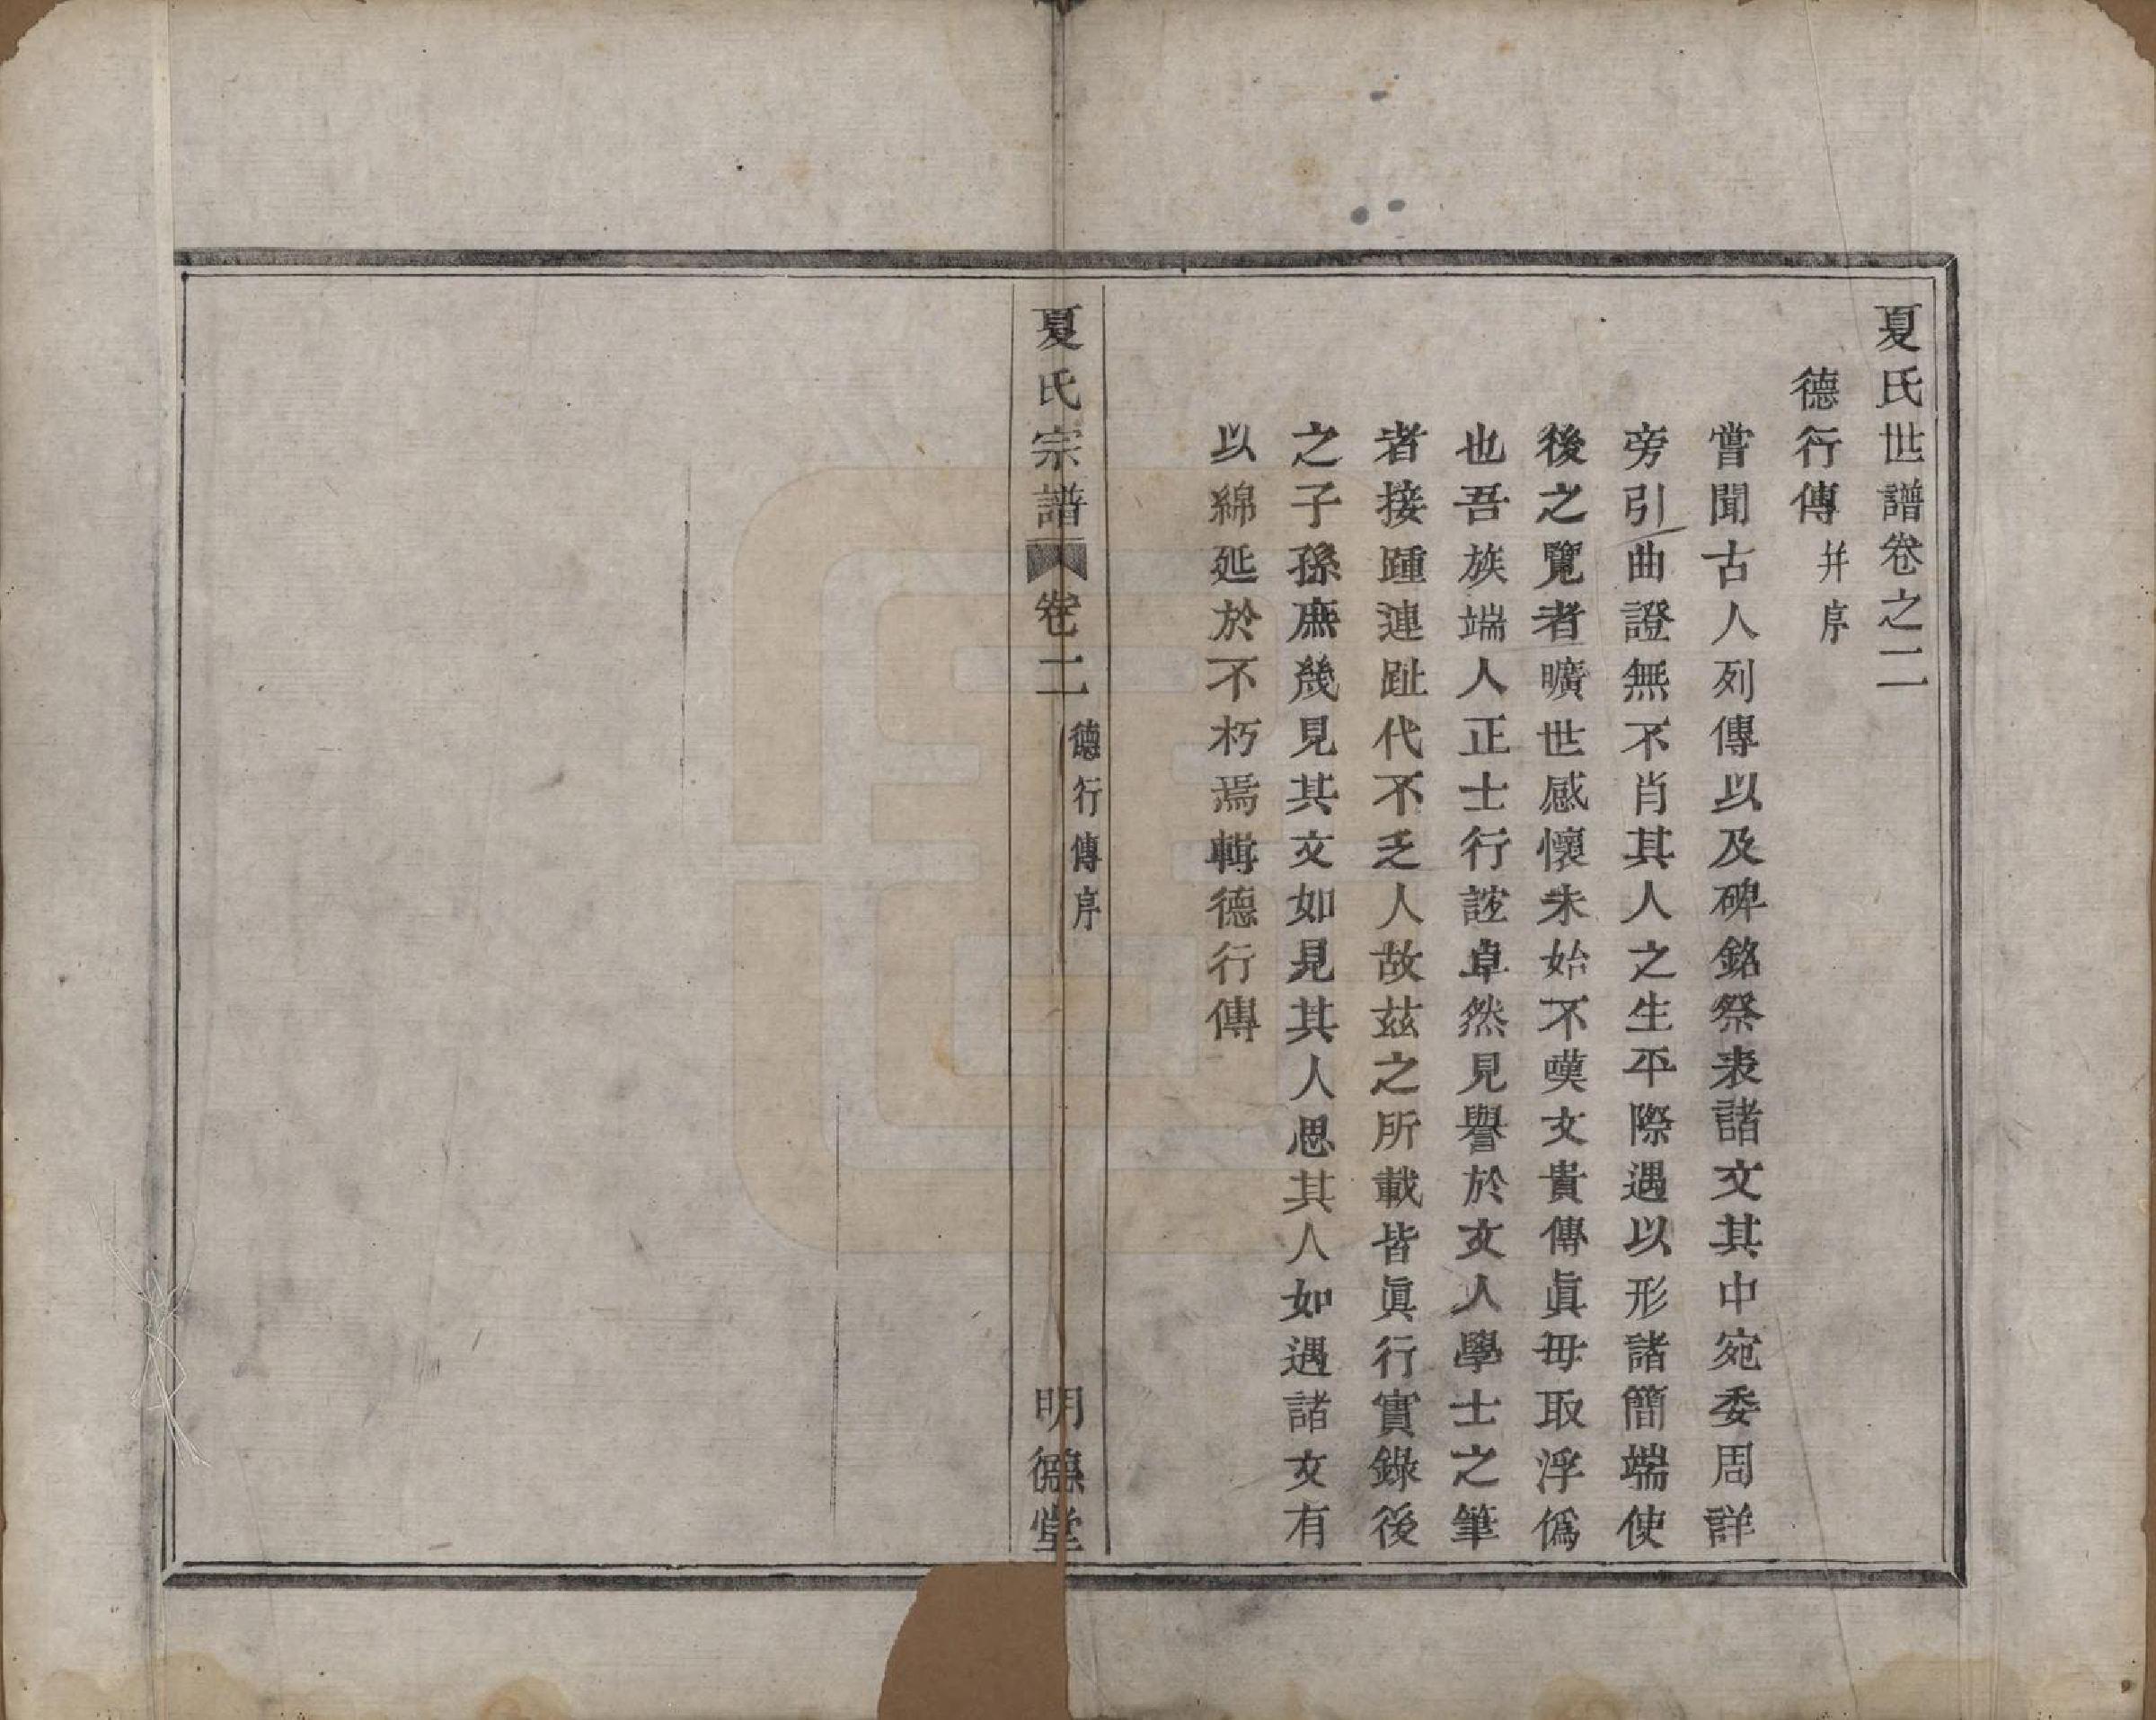 夏氏世譜卷之二
德行傳并序
嘗聞古人列傳以及碑銘祭表諸文其中宛委周詳
旁引曲證無不肖其人之生平際遇以形諸簡端使
後之覽者曠世感懷未始不嘆文貴傳眞毋取浮僞
也吾族端人正士行誼卓然見譽於文人學士之筆
者接踵連趾代不乏人故茲之所載皆眞行實錄後
之子孫庶幾見其文如見其人思其人如遇諸文有
以綿延於不朽焉輯德行傳
夏氏宗譜 卷二 德行傳序 明德堂